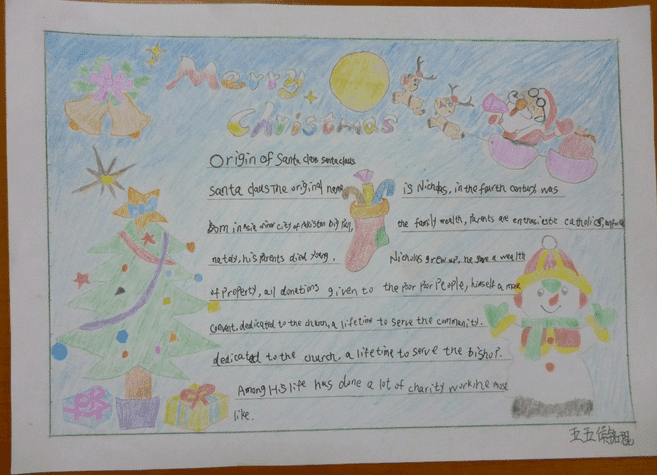 Merry
Christmas
Origin of Santa claus santa claus
santa claus The original name is Nicholas, in the fourth century was
Born in minor city of the family wealth, parents are enthusiastic catholics,
nately, his parents died young. Nicholas grew up, he gave a wealth
of property, all donations given to the poor poor People, himself a
Convent, dedicated to the church, a lifetime to serve the community.
dedicated to the church, a lifetime to serve the bishop.
Among His life has done a lot of charity work. he most
like.
五五